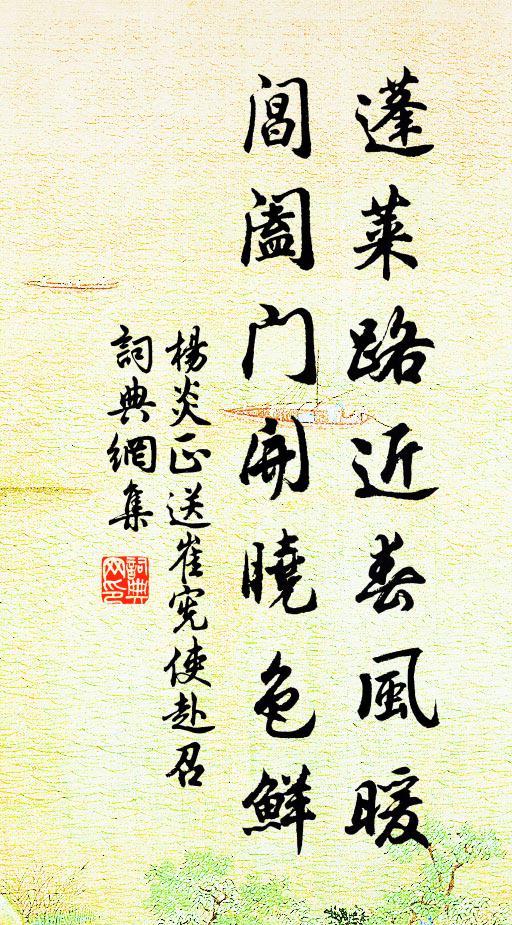 蓬萊路近春風暖
閶闔門開曉色鮮
楊炎正送崔憲使赴召
詞典網集
詞典网印